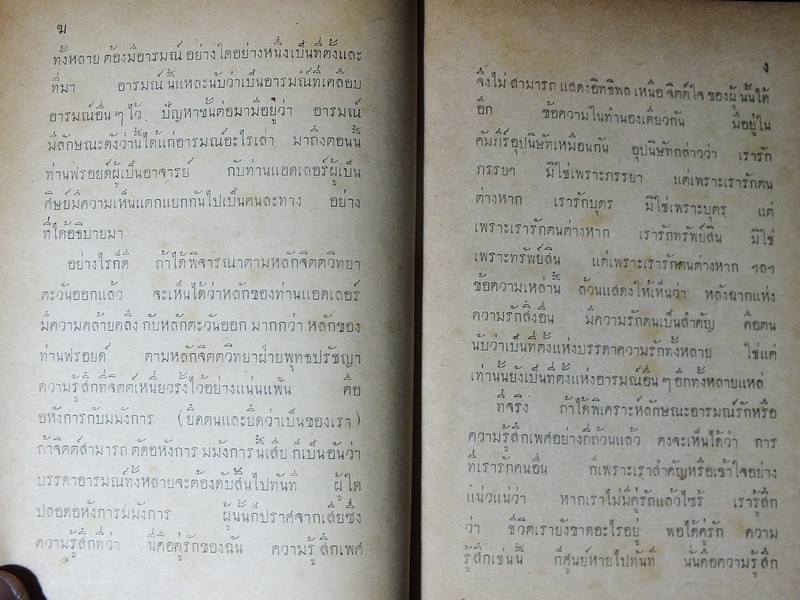 ฆ
ทั้งหลาย ต้องมีอารมณ์ อย่างใดอย่างหนึ่งเป็นที่ตั้งและ
ที่มา อารมณ์นี้แหละนับว่าเป็นอารมณ์ที่เคลือบ
อารมณ์อื่นๆไว้ ปัญหาขั้นต่อมามีอยู่ว่า อารมณ์
มีลักษณะดังว่านี้ได้แก่อารมณ์อะไรเล่า มาถึงตอนนี้
ท่านฟรอยด์ผู้เป็นอาจารย์ กับท่านแอดเลอร์ผู้เป็น
ศิษย์มีความเห็นแตกแยกกันไปเป็นคนละทาง อย่าง
ที่ได้อธิบายมา
อย่างไรก็ดี ถ้าได้พิจารณาตามหลักจิตตวิทยา
ตะวันออกแล้ว จะเห็นได้ว่าหลักของท่านแอดเลอร์
มีความคล้ายคลึง กับหลักตะวันออก มากกว่า หลักของ
ท่านฟรอยด์ ตามหลักจิตตวิทยาฝ่ายพุทธปรัชญา
ความรู้สึกที่จิตต์เหนี่ยวรั้งไว้อย่างแน่นแฟ้น คือ
อหังการกับมมังการ (ยึดตนและยึดว่าเป็นของเรา)
ถ้าจิตต์สามารถ ตัดอหังการ มมังการนี้เสีย ก็เป็นอันว่า
บรรดาอารมณ์ทั้งหลายจะต้องดับสิ้นไปทันที ผู้ใด
ปลอดอหังการมมังการ ผู้นั้นก็ปราศจากเสียซึ่ง
ความรู้สึกที่ว่า นี่คือคู่รักของฉัน ความรู้สึกเพศ
ง
จึงไม่ สามารถ แสดงอิทธิพล เหนือ จิตต์ใจ ของผู้ นั้นได้
อีก ข้อความในทำนองเดียวกัน มีอยู่ใน
คัมภีร์อุปนิษัทเหมือนกัน อุปนิษัทกล่าวว่า เรารัก
ภรรยา มิใช่เพราะภรรยา แต่เพราะเรารักตน
ต่างหาก เรารักบุตร มิใช่เพราะบุตร แต่
เพราะเรารักตนต่างหาก เรารักทรัพย์สิน มิใช่
เพราะทรัพย์สิน แต่เพราะเรารักตนต่างหาก ฯลฯ
ข้อความเหล่านี้ ล้วนแสดงให้เห็นว่า หลังฉากแห่ง
ความรักสิ่งอื่น มีความรักตนเป็นสำคัญ คือตน
นับว่าเป็นที่ตั้งแห่งบรรดาความรักทั้งหลาย ใช่แต่
เท่านั้นยังเป็นที่ตั้งแห่งอารมณ์อื่นๆอีกทั้งหลายแหล่
ที่จริง ถ้าได้พิเคราะห์ลักษณะอารมณ์รักหรือ
ความรู้สึกเพศอย่างถี่ถ้วนแล้ว คงจะเห็นได้ว่า การ
ที่เรารักคนอื่น ก็เพราะเราสำคัญหรือเข้าใจอย่าง
แน่วแน่ว่า หากเราไม่มีคู่รักแล้วไซร้ เรารู้สึก
ว่า ชีวิตเรายังขาดอะไรอยู่ พอได้คู่รัก ความ
รู้สึกเช่นนี้ ก็ศูนย์หายไปทันที นั้นคือความรู้สึก